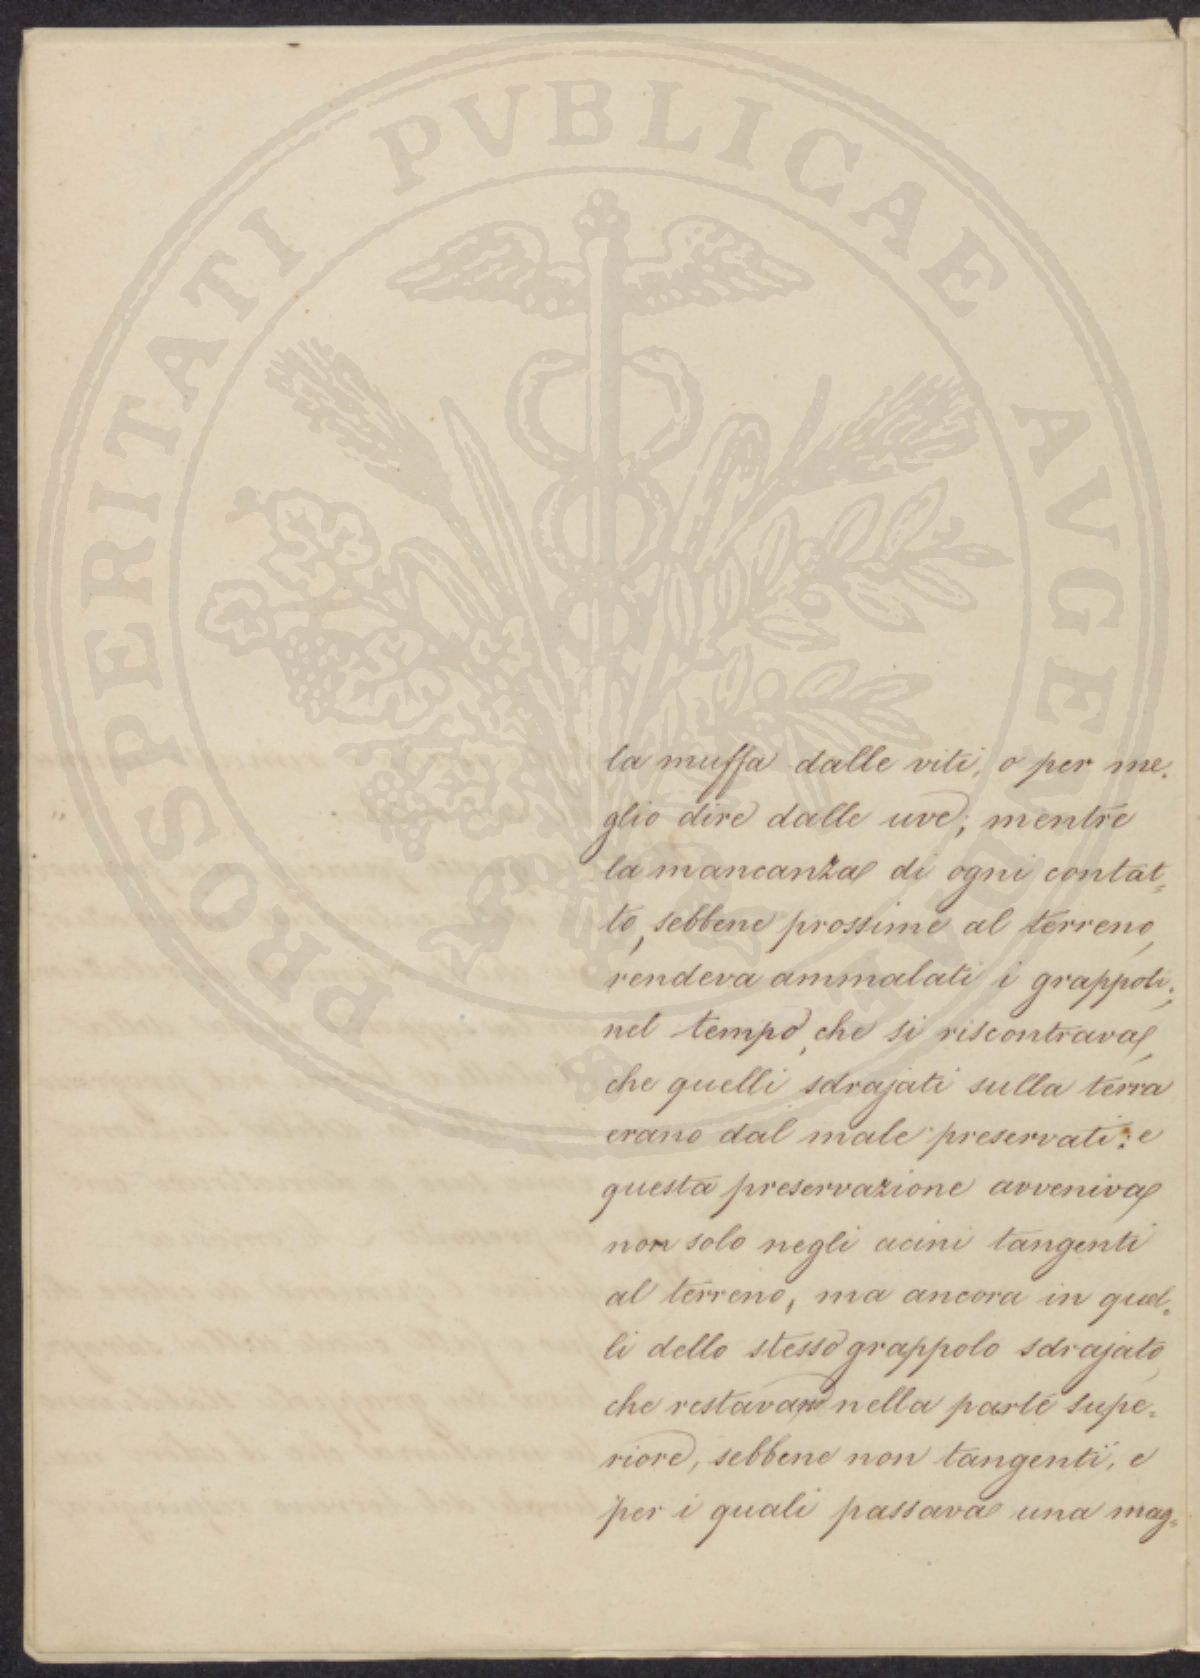 PROSPERITATI PVBLICAE AVGENDAE
la muffa dalle viti, o per me-
glio dire dalle uve; mentre
la mancanza di ogni contat-
to, sebbene prossime al terreno,
rendeva ammalati i grappoli;
nel tempo, che si riscontrava,
che quelli sdrajati sulla terra
erano dal male preservati: e
questa preservazione avveniva
non solo negli acini tangenti
al terreno, ma ancora in quel-
li dello stesso grappolo sdrajato,
che restavano nella parte supe-
riore, sebbene non tangenti, e
per i quali passava una mag-